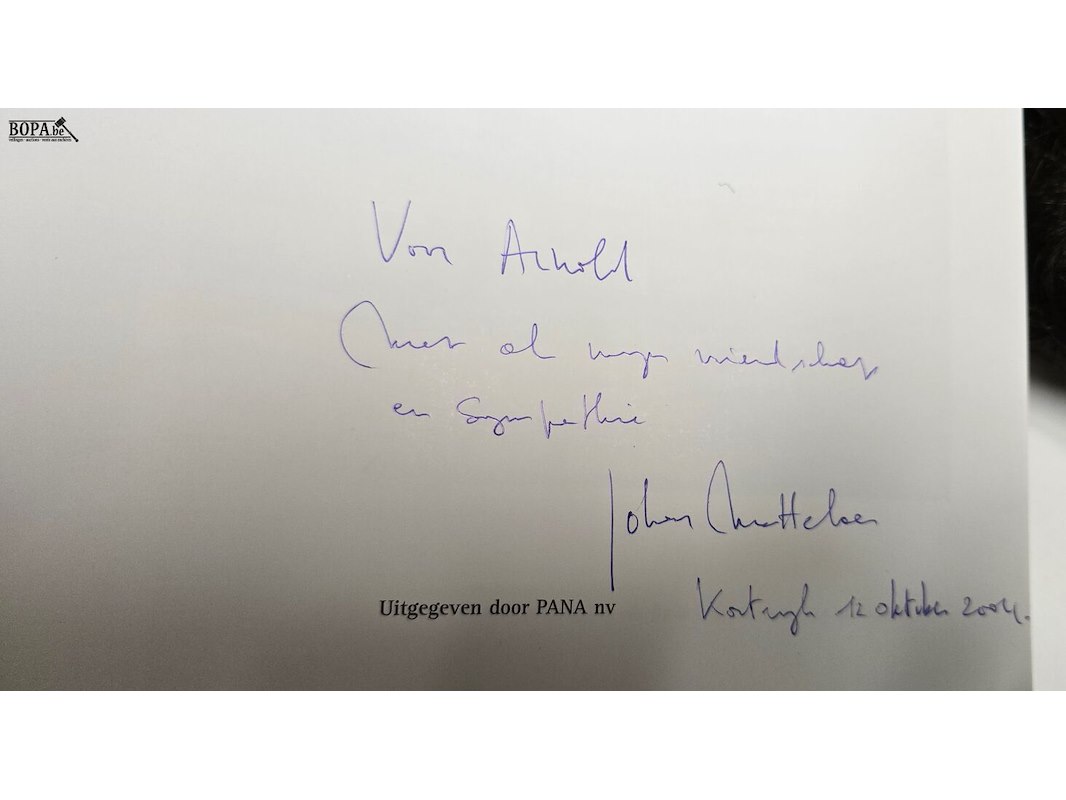 BOPA.be
veilingen - auctions - vente aux enchères
Voor Arnold
Met al mijn vriendschap
en Sympathie
Johan Mattelaer
Uitgegeven door PANA nv
Kortrijk 12 oktober 2004.